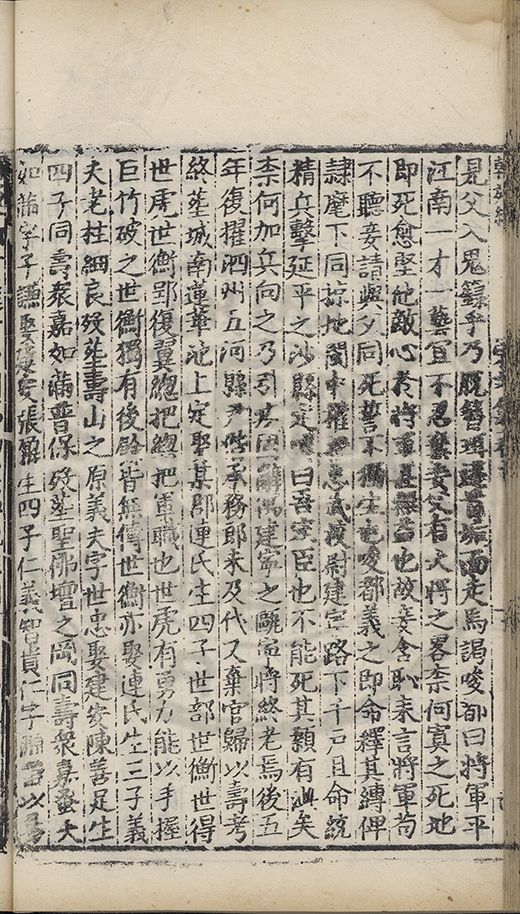 見父入鬼錄乎乃脫簪珥垢面走馬謁唆都曰將軍平
江南一才一藝宜不忍棄妾父有大將之畧柰何寘之死地
即死愈堅他敵心於將軍無益也故妾含恥來言將軍苟
不聽妾請與父同死誓不獨生也唆都義之即命釋其縛俾
隷麾下同掠地閩中擢忠武校尉建寧路下千戸且命統
精兵擊延平之沙縣定 曰吾宋臣也不能死其顙有泚矣
柰何加兵向之乃引疾因辭寓建寧之甌寧將終老焉後五
年復擢泗州五河縣尹階承務郎未及代又棄官歸以壽考
終塟城南蓮華池上定娶某郡連氏生四子世部世衡世得
世虎世衡郢復翼緫把緫把軍職也世虎有勇力能以手握
巨竹破之世衡獨有後餘皆無傳世衡亦娶連氏生三子義
夫老桂細良歿塟壽山之原義夫字世忠娶建安陳善足生
四子同壽衆嘉如滿普保歿塟聖佛壇之岡同壽衆嘉蚤夭
如滿字子謙娶建安張 生四子仁義智貴仁字 以